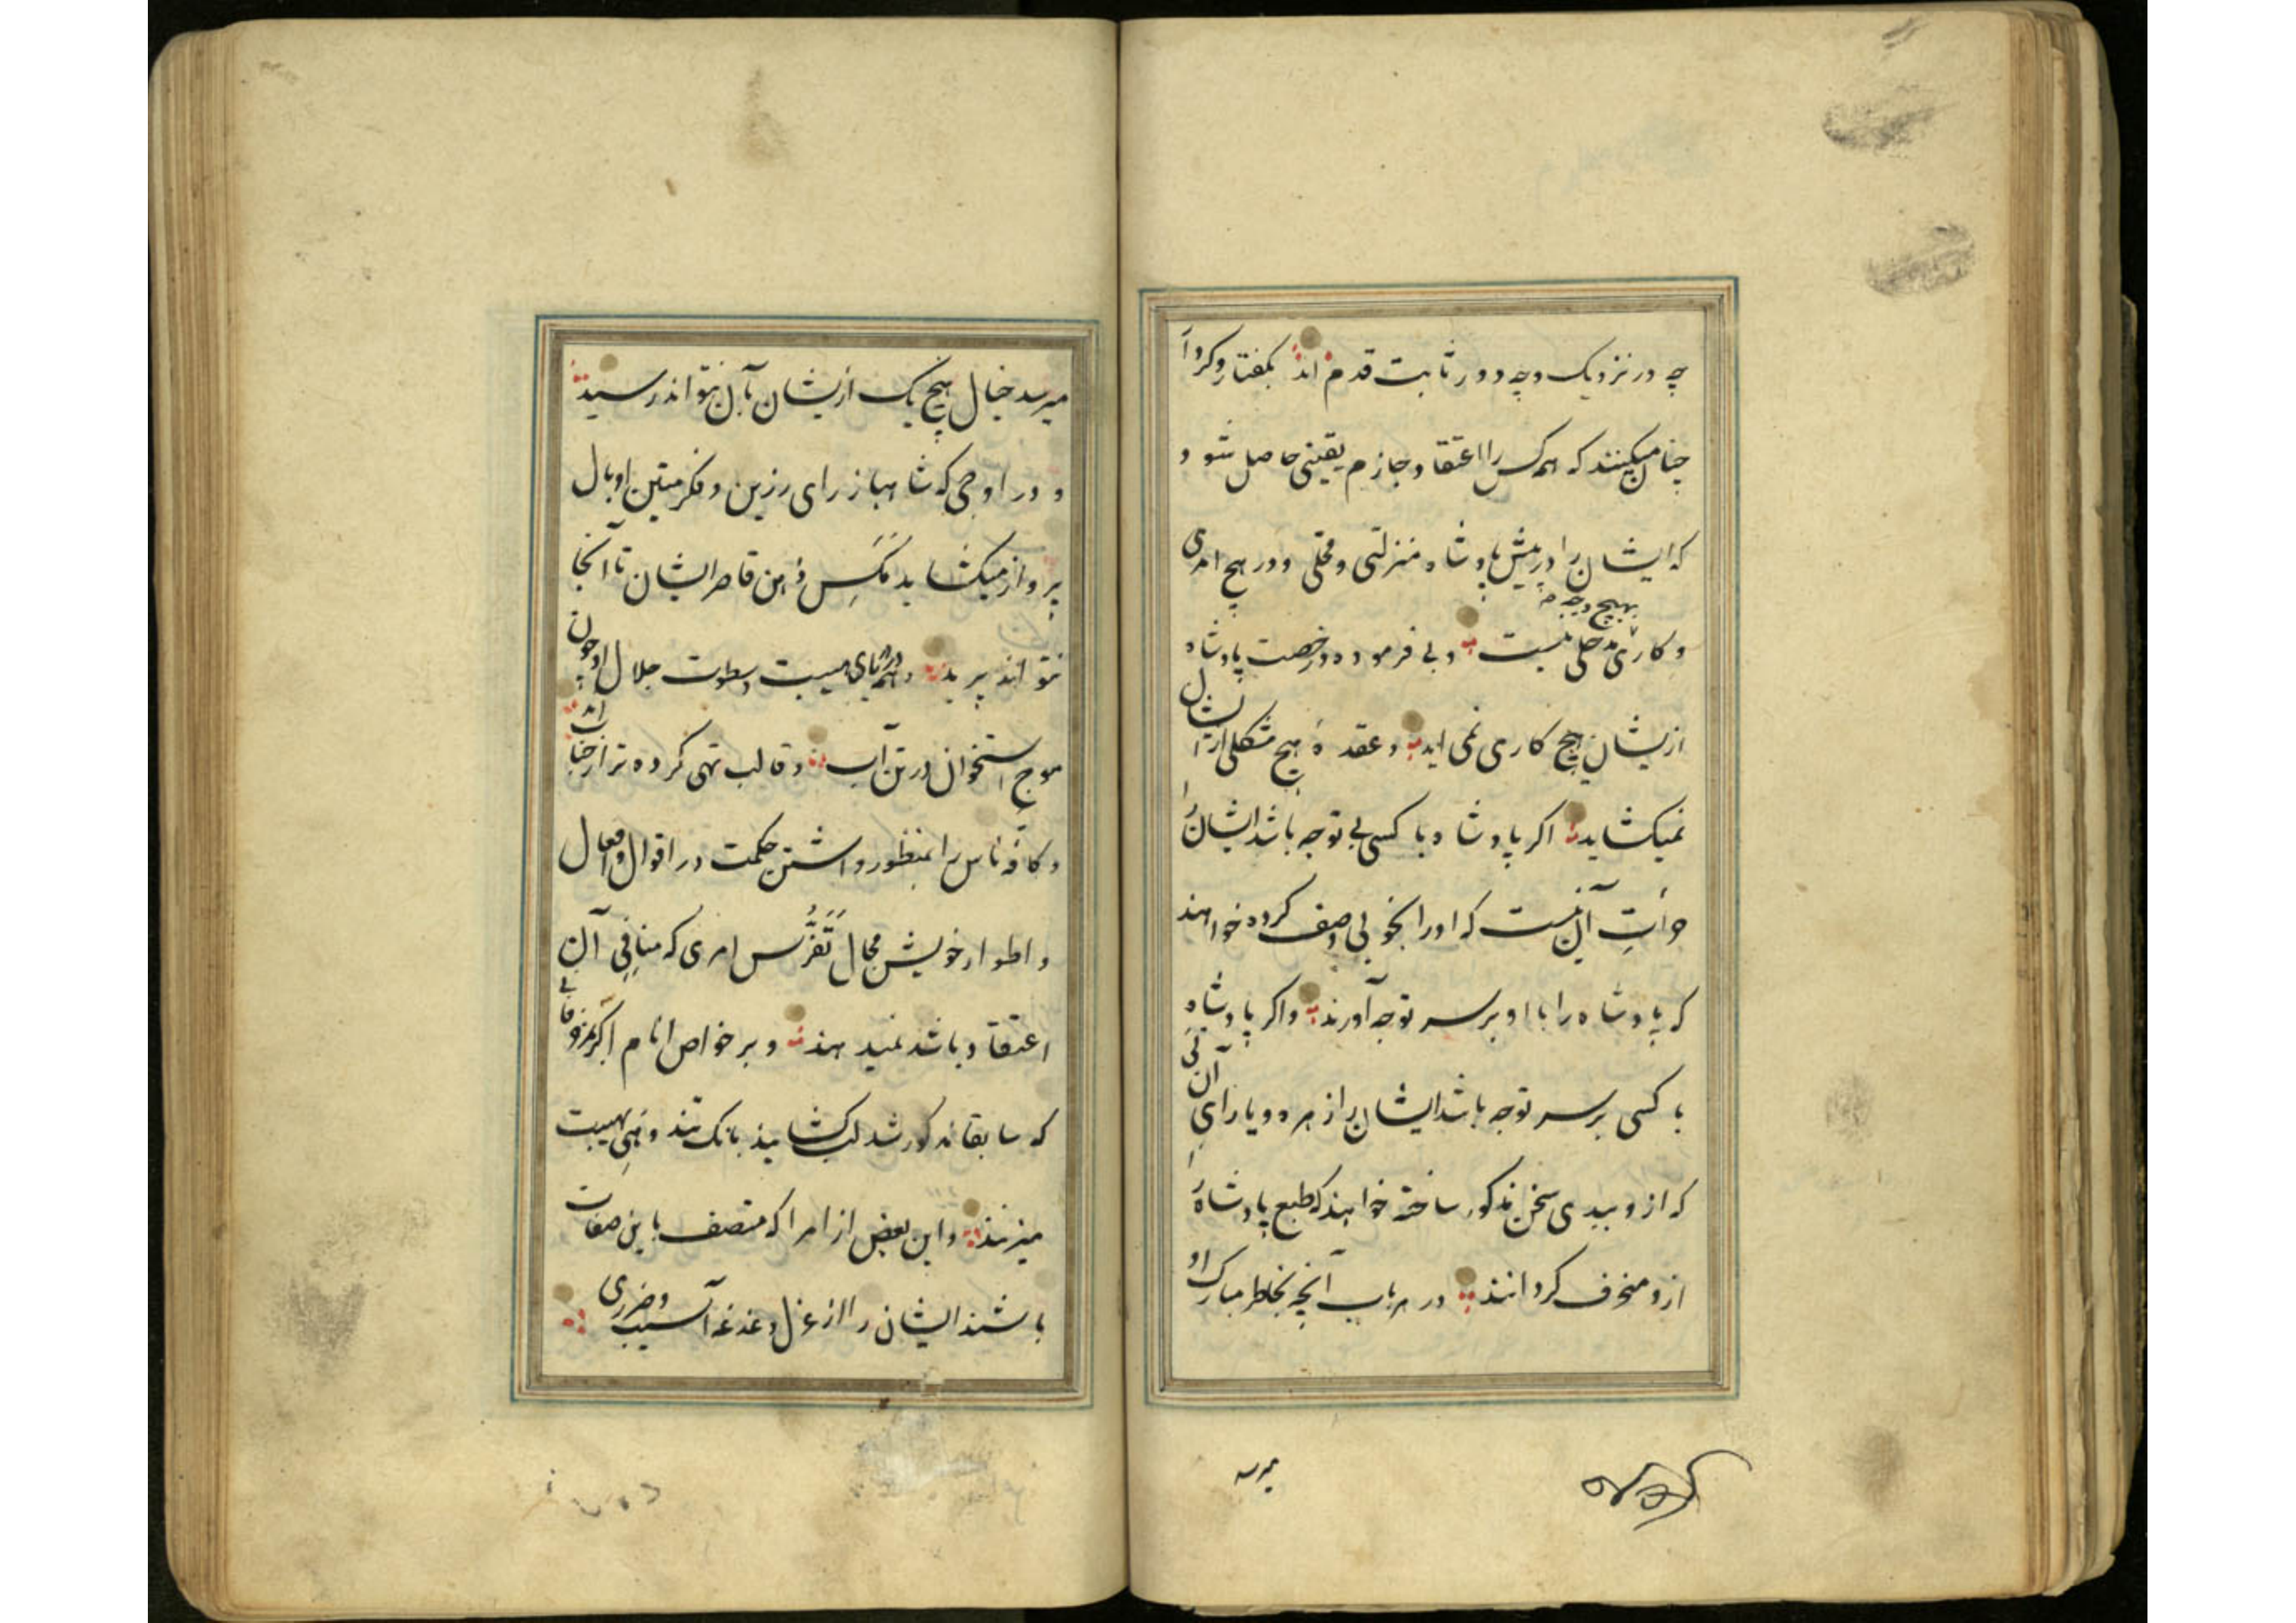 چه در نزدیک و چه دور ثابت قدم اند بگفتار و کردار
چنان میکنند که همه کس را اعتقاد جازم یقینی حاصل شود
که ایشان را در پیش پادشاه منزلتی و محلی و در هیچ امری
بهیچ وجه
و کاری مدخلی نیست و بی فرموده و رخصت پادشاه
از ایشان هیچ کاری نمی اید و عقدهٔ هیچ مشکلی از ایشان
نمیکشاید اکر پادشاه با کسی بی توجه باشد ایشان را
جرأتِ آن نیست که او را بخوبی وصف کرده خواهند
که پادشاه را با او بر سر توجه آورند و اکر پادشاهِ
با کسی بر سر توجه باشد ایشان را زهره و یارای آن نی
که از و ببدی سخن مذکور ساخته خواهند که طبع پادشاه را
ازو منحرف کردانند در هر باب آنچه بخاطر مبارک او
میرسد
میرسد خیال هیچ یک از ایشان بآن نتواند رسید
و در اوجی که شاهباز رای رزین و فکر متین او بال
پرواز میکشاید مَکَسِ ذهن قاصر ایشان تا آنجا
نتواند پرید و در دریای هیبت و سطوت جلال او چون
موج استخوان در تن آب و قالب تهی کرده تر از حباب اند
و کافهٔ ناس را بمنظور داشتن حکمت در اقوال و افعال
و اطوار خویش مجال تَفَرُّس امری که منافیِ آن
اعتقاد باشد نمیدهند و بر خواص انام اکر بحرفی
که سابقا مذکور شد لب کشایند بانک تند و نهی هیبت
میزنند و این بعض از امرا که متصف باین صفات
باشند ایشان را از عزل دغدغه آسیب و ضرری